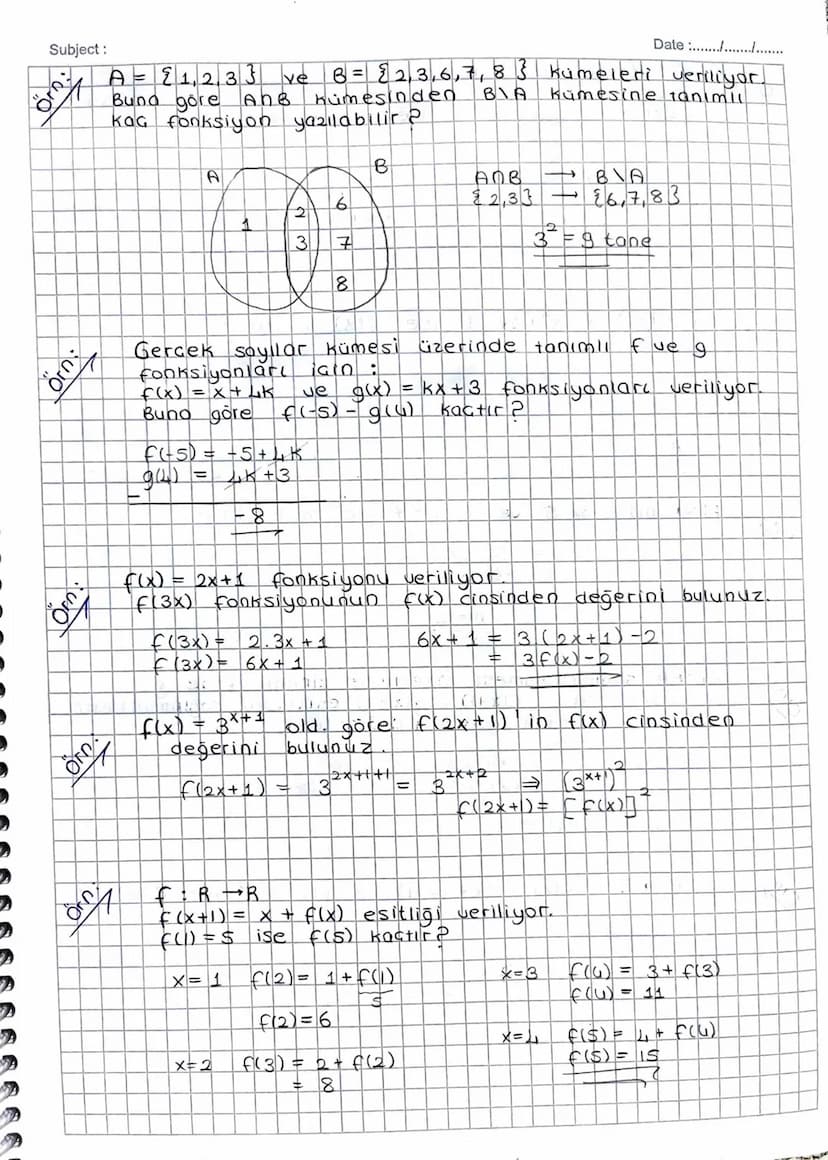 Subject :
Date :......./......./.......
Örn:
A = {1,2,3} ve B = {2,3,6,7,8} kümeleri veriliyor.
Buna göre A∩B kümesinden B\A kümesine tanımlı
kaç fonksiyon yazılabilir?
A
B
1
2
3
6
7
8
A∩B → B\A
{2,3} → {6,7,8}
3² = 9 tane
Örn:
Gerçek sayılar kümesi üzerinde tanımlı f ve g
fonksiyonları için :
f(x) = x+4k ve g(x) = kx+3 fonksiyonları veriliyor.
Buna göre f(-5) - g(4) kaçtır?
f(-5) = -5+4k
g(4) = 4k+3
-
-8
Örn:
f(x) = 2x+1 fonksiyonu veriliyor.
f(3x) fonksiyonunun f(x) cinsinden değerini bulunuz.
f(3x) = 2.3x+1
f(3x) = 6x+1
6x+1 = 3(2x+1)-2
= 3f(x)-2
Örn:
f(x) = 3^{x+1} old. göre f(2x+1)'in f(x) cinsinden
değerini bulunuz.
f(2x+1) = 3^{2x+1+1} = 3^{2x+2} ⇒ (3^{x+1})²
f(2x+1) = [f(x)]²
Örn:
f : R → R
f(x+1) = x + f(x) eşitliği veriliyor.
f(1) = 5 ise f(5) kaçtır?
x=1 f(2) = 1 + f(1)
5
f(2) = 6
x=2 f(3) = 2 + f(2)
= 8
x=3 f(4) = 3 + f(3)
f(4) = 11
x=4 f(5) = 4 + f(4)
f(5) = 15